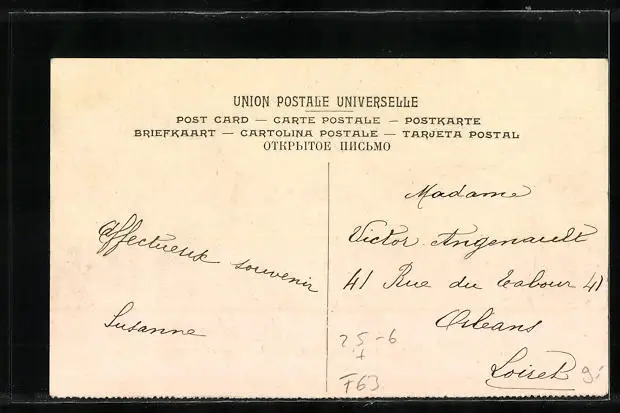 UNION POSTALE UNIVERSELLE
POST CARD — CARTE POSTALE — POSTKARTE
BRIEFKAART — CARTOLINA POSTALE — TARJETA POSTAL
ОТКРЫТОЕ ПИСЬМО
Affectueux souvenir
Susanne
Madame
Victor Angenault
41 Rue du Tabour 41
Orléans
Loiret
25-6
F63